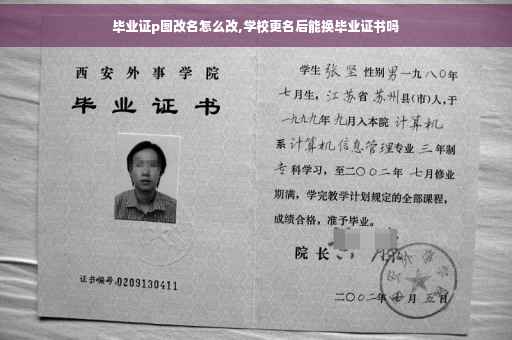 毕业证p图改名怎么改,学校更名后能换毕业证书吗
西安外事学院
毕业证书
证书编号:0209130411
学生 张坚 性别 男 一九八〇年
七月生, 江苏省 苏州县(市)人,于
一九九九年 九月入本院 计算机
系 计算机信息管理专业 三 年制
专 科学习, 至二〇〇二年 七月修业
期满, 学完教学计划规定的全部课程,
成绩合格, 准予毕业。
院长
二〇〇二年 月五日